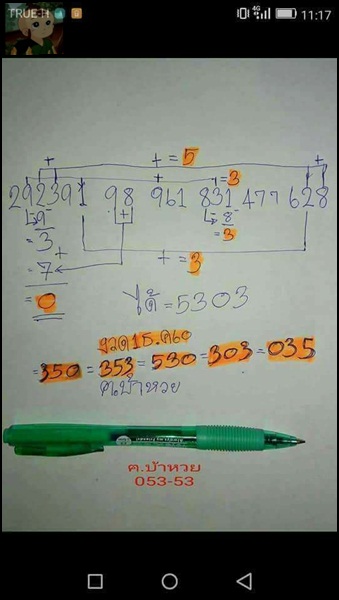 TRUE-H 4G 11:17
+ + = 5 +
+ = 3
292391 98 961 831 477 628
9 + 8
= 3 = 3
+
= 7 + = 3
= 0 ได้ = 5303
งวด 15.คย
= 350 = 353 = 530 = 303 = 035
ฅ.บ้าหวย
ฅ.บ้าหวย
053-53